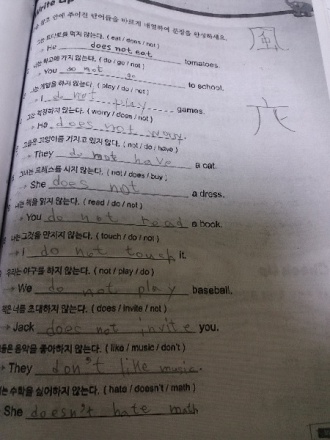 Write Up
안에 주어진 단어들을 바르게 배열하여 문장을 완성하세요.
그는 토마토를 먹지 않는다. ( eat / does / not )
→ He does not not tomatoes.
학교에 가지 않는다. ( do / go / not )
→ You do not go to school.
게임을 하지 않는다. ( play / do / not )
→ I do not play games.
걱정하지 않는다. ( worry / does / not )
→ He does not worry.
그들은 고양이를 가지고 있지 않다. ( not / do / have )
→ They do not have a cat.
그녀는 드레스를 사지 않는다. ( not / does / buy )
→ She does not a dress.
너는 책을 읽지 않는다. ( read / do / not )
→ You do not read a book.
나는 그것을 만지지 않는다. ( touch / do / not )
→ I do not touch it.
우리는 야구를 하지 않는다. ( not / play / do )
→ We do not play baseball.
잭은 너를 초대하지 않는다. ( does / invite / not )
→ Jack does not invite you.
그들은 음악을 좋아하지 않는다. ( like / music / don't )
→ They don't like music.
수학을 싫어하지 않는다. ( hate / doesn't / math )
She doesn't hate math
風